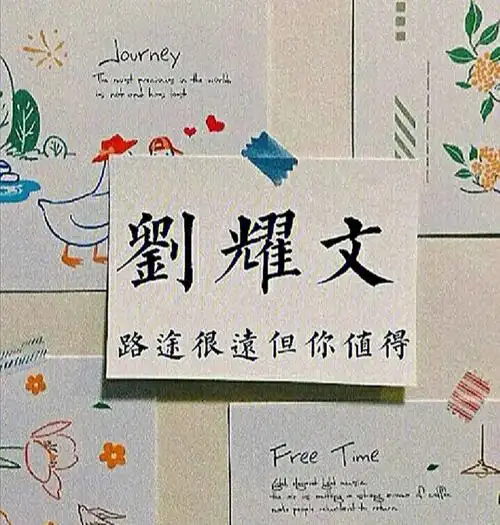 Journey
The most precious in the world
is not and has lost
劉耀文
路途很遠但你值得
Free Time